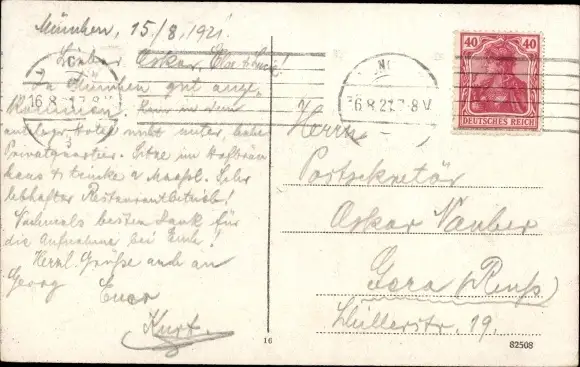 München, 15./8. 1921.
Lieber Oskar, Else & Luci!
In München gut ange-
kommen. Kam in dem
Hotel nicht unter, habe
Privatquartier. Sitze im Hofbräu
haus & trinke 2 Maaßl. Sehr
lebhafter Restaurantbetrieb!
Nochmals besten Dank für
die Aufnahme bei Euch!
Herzl. Grüße auch an
Georg
Euer
Kurt.
16.8.21.7-8V.
16.8.21.7-8V.
40 40
DEUTSCHES REICH
Herrn
Postsekretär
Oskar Nauber
Gera (Reuß)
Hüllerstr. 19.
16
82508